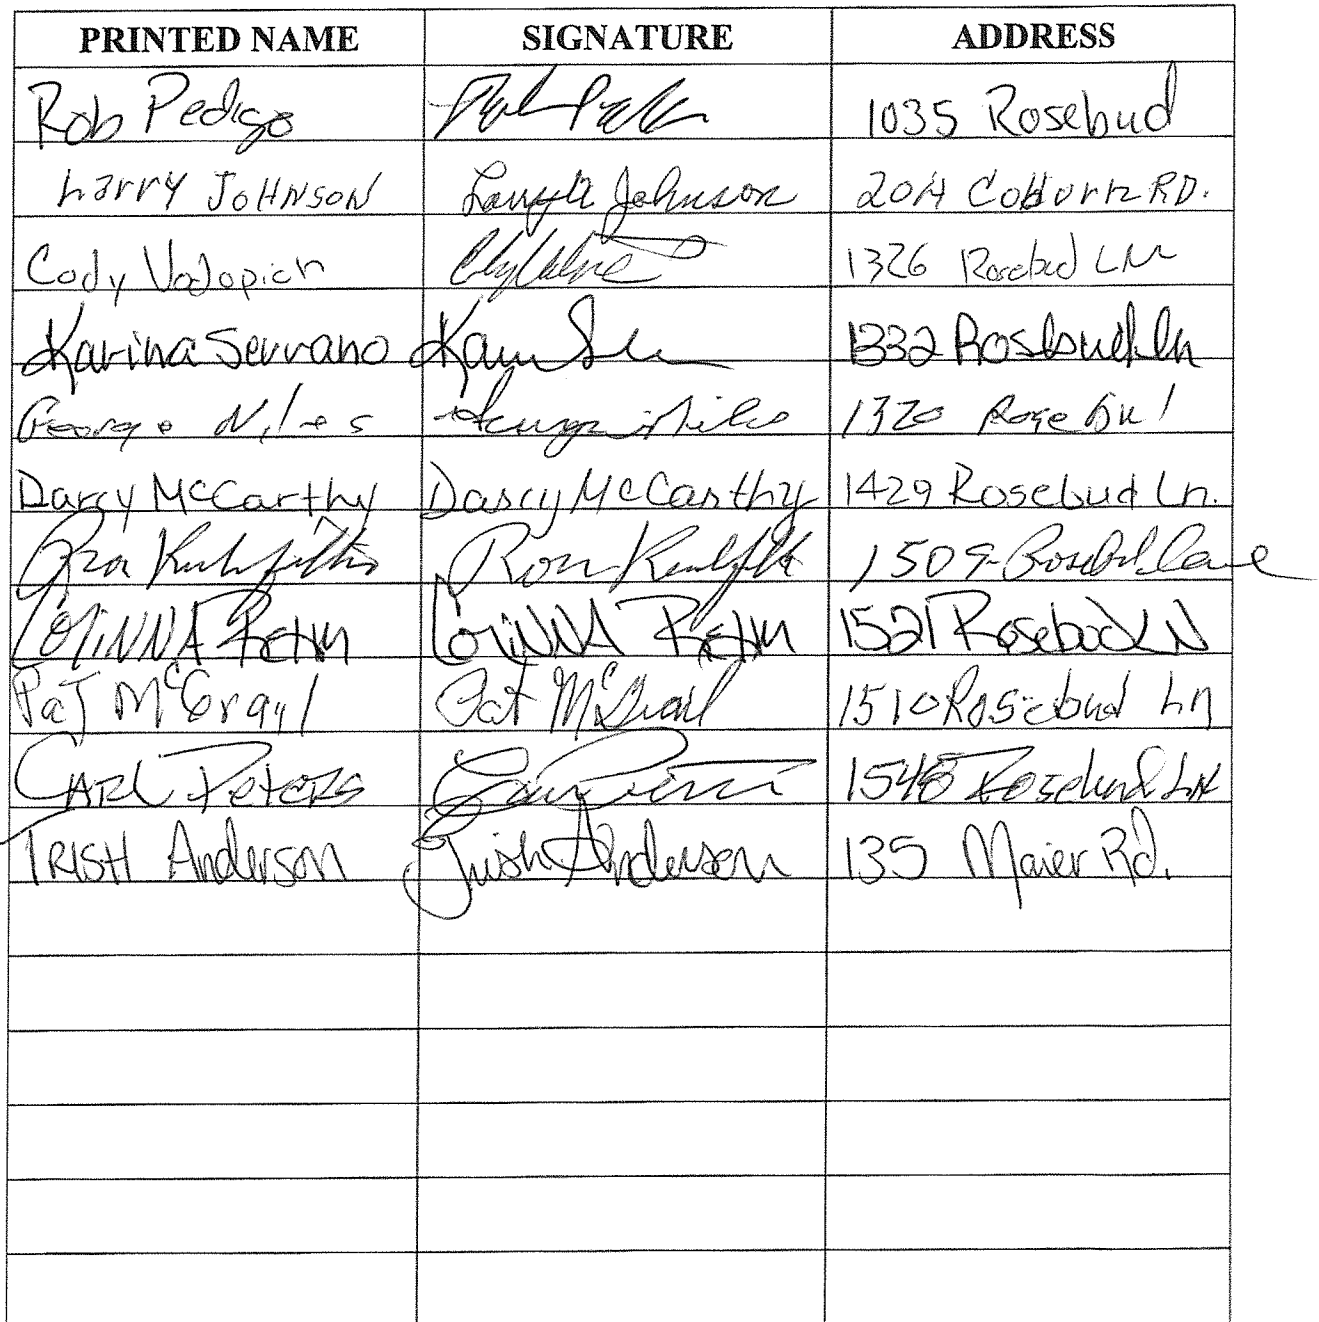 PRINTED NAME SIGNATURE ADDRESS
Rob Pedigo 1035 Rosebud
Larry JOHNSON Larry Johnson 204 Coburn RD.
Cody Vodopich 1326 Rosebud LN
Karina Serrano 1332 Rosebud Ln
George Niles George Niles 1320 Rosebud
Darcy McCarthy Darcy McCarthy 1429 Rosebud Ln.
Ron Ron 1509 Rosebud Lane
CORINNA REHM CORINNA REHM 1521 Rosebud LN
PaT McGrayl Pat McGrail 1510 Rosebud Ln
CARL PETERS 1548 Rosebud LN
TRISH Anderson Trish Anderson 135 Maier Rd.